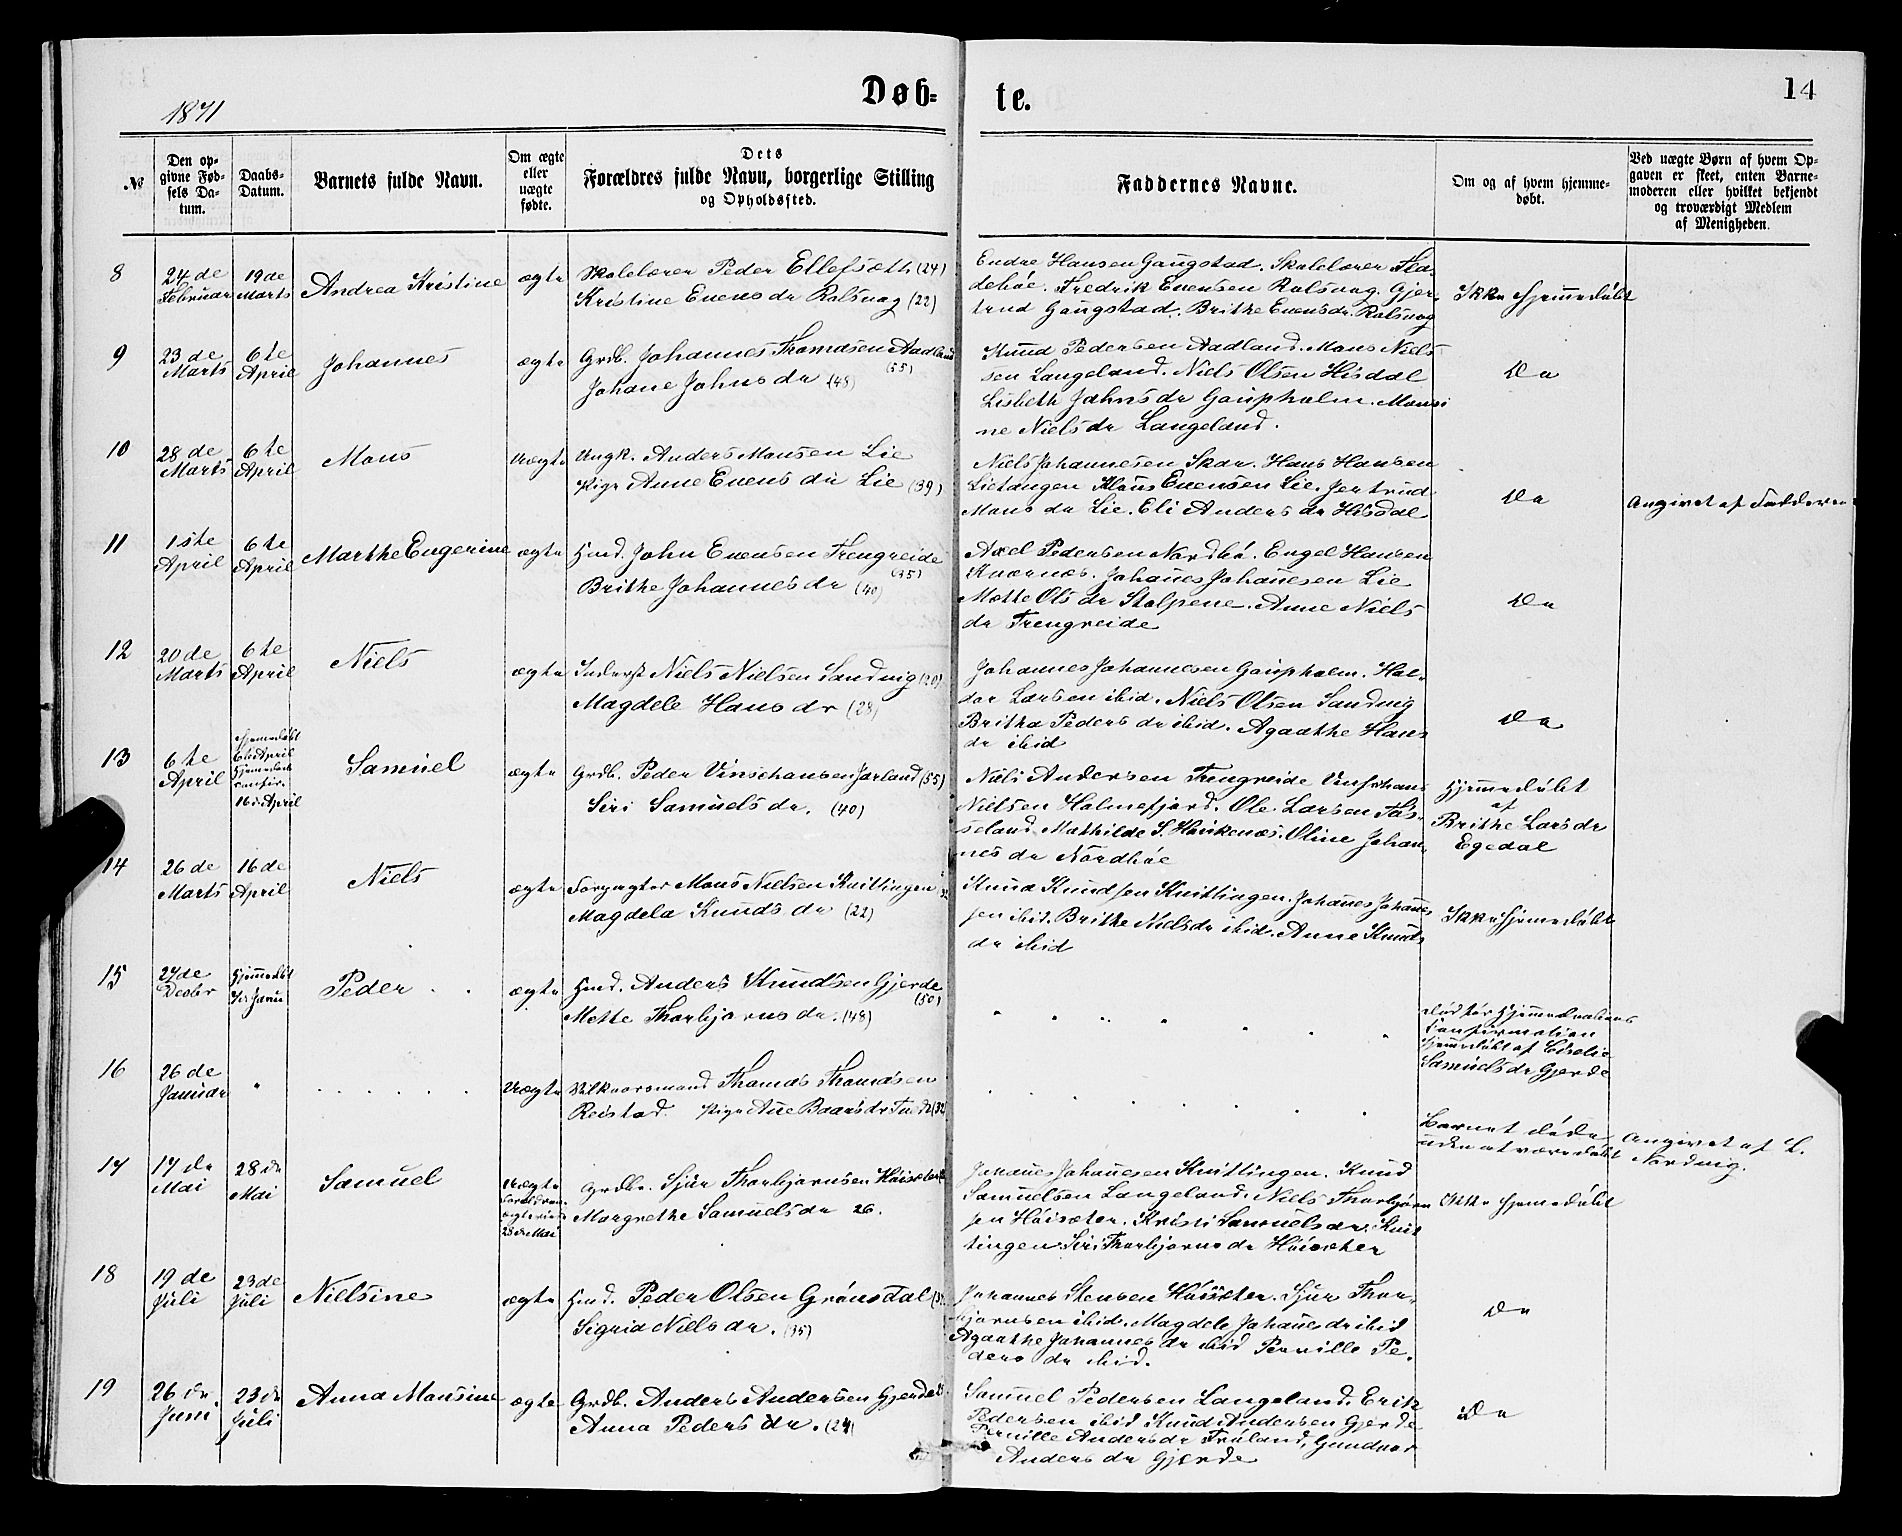 Døb-te.
14
1871
№
Den op-
givne Fød-
sels Da-
tum.
Daabs-
Datum.
Barnets fulde Navn.
Om ægte
eller
uægte
fødte.
Dets
Forældres fulde Navn, borgerlige Stilling
og Opholdssted.
Faddernes Navne.
Om og af hvem hjemme-
døbt.
Ved uægte Børn af hvem Op-
gaven er skeet, enten Barne-
moderen eller hvilket bekjendt
og troværdigt Medlem
af Menigheden.
8
24de
Februar
19de
Marts
Andrea Kristine
ægte
Skolelærer Peder Ellefsæth (24)
Kristine Evensdr Rolsvog (22)
Endre Hansen Gaugstad. Skolelærer Fla-
dehöe. Fredrik Evensen Rolsvog. Gjer-
trud Gaugstad. Brithe Evensdr. Rolsvog
Ikke hjemmedøbt
9
23de
Marts
6te
April
Johannes
ægte
Grdb. Johannes Thomasen Aadland
(55)
Johane Johnsdr (48)
Knud Pedersen Aadland. Mons Niels-
sen Langeland. Niels Olsen Hisdal
Lisbeth Johnsdr Gaupholm. Monsi
ne Nielsdr Langeland.
Do
10
28de
Marts
6te
April
Mons
Uægte
Ungk. Anders Monsen Lie
Pige Anne Evensdr Lie (39)
Niels Johannesen Skar. Hans Hansen
Lietangen Klaus Evensen Lie. Jertrud
Monsdr Lie. Eli Andersdr Hisdal
Do
Angivet af Fadderne
11
1ste
April
6te
April
Marthe Eugerine
ægte
Hmd. John Evensen Trengreide
(35)
Brithe Johannesdr (40)
Axel Pedersen Nordbö. Engel Hansen
Kvernes. Johanes Johanesen Lie
Mette Olsdr Stolpene. Anne Niels
dr Trengreide
Do
12
20de
Marts
6te
April
Niels
ægte
Inderst Niels Nielsen Sandvig (20)
Magdele Hansdr (28)
Johannes Johannesen Gaupholm. Hal-
dor Larsen ibid. Niels Olsen Sandvig
Britha Pedersdr ibid. Agaathe Hans
dr ibid
Do
13
6te
April
Hjemmedøbt
6te April
16de April
Samuel
ægte
Grdb. Peder Vinschansen Jarland (55)
Siri Samuelsdr. (40)
Niels Andersen Trengreide
Nielsen Holmefjord. Ole Larsen Tös-
seland. Mathilde S. Haukenæs. Oline Johan-
nesdr Nordböe
Hjemmedøbt
af
Brithe Larsdr
Egedal
14
26de
Marts
16de
April
Niels
ægte
Forpagter Mons Nielsen Knittingen
Magdela Knudsdr (22)
Knud Knudsen Knittingen. Johanes Johanes
sen ibid. Brithe Nielsdr ibid. Anne Knuds
dr ibid
Ikke hjemmedøbt
15
27de
Decbr
Hjemmedøbt
Peder
ægte
Hmd. Anders Knudsen Gjerde
(50)
Mette Thorbjørnsdr. (48)
Død før Hjemmedaabens
Confirmation
Hjemmedøbt af
Samuelsdr Gjerde
16
26de
Januar
Uægte
Vilkaarsmand Thomas Thomasen
Reistad. Pige
Barnet døde
uden at være døbt
Angivet af L.
Nordvig.
17
17de
Mai
28de
Mai
Samuel
Uægte
Forældrene
23de Mai
Grdbr. Sjur Thorbjørnsen Höisæter
Margrethe Samuelsdr 26.
Johanes Johanesen Knittingen. Knud
Samuelsen Langeland. Niels Thorbjørn
sen Höisæter. Kristi Samuelsdr. Knit
tingen Siri Thorbjørnsdr Höisæter
Ikke hjemmedøbt
18
19de
Juli
23de
Juli
Nielsine
ægte
Hmd. Peder Olsen Grönsdal
Sigrid Nielsdr. (35)
Johannes Stensen Höisæter. Sjur Thor-
bjørnsen ibid. Magdele Johanesdr ibid
Agaathe Johannesdr ibid Pernille Pe-
dersdr ibid.
Do
19
26de
Juni
23de
Juli
Anna Monsine
ægte
Grdb. Anders Andersen Gjerde
Anna Pedersdr. (24)
Samuel Pedersen Langeland. Erik
Pedersen ibid Knud Andersen Gjerde
Pernille Andersdr Fröland, Gundvor
Andersdr Gjerde
Do